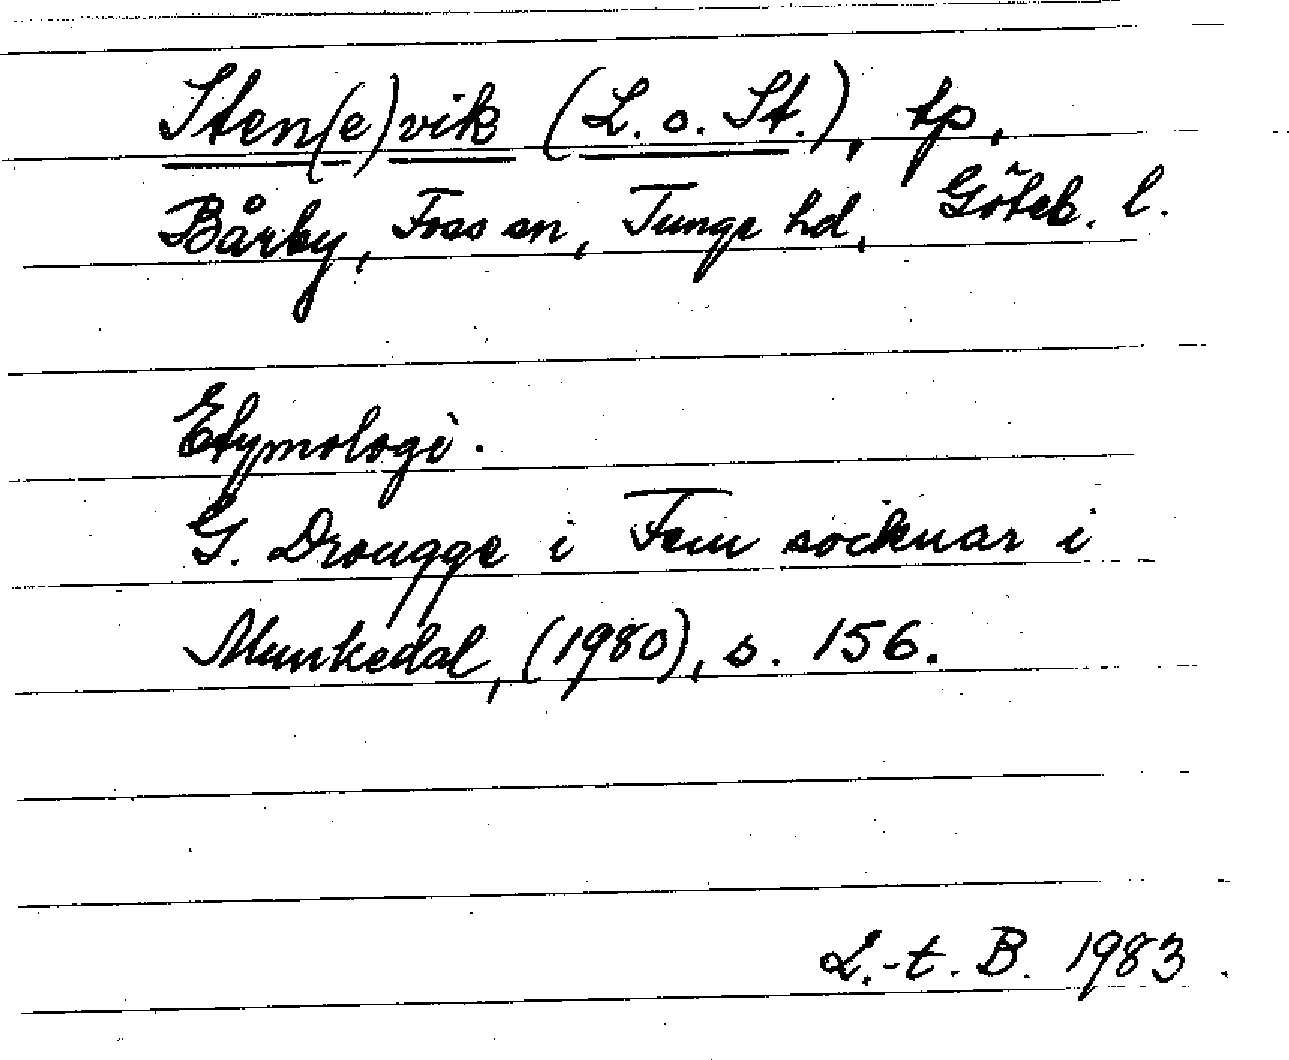 Sten(e)vik (L. o. St.), tp,
Bårby, Foss sn, Tunge hd, Göteb. l.
Etymologi.
G. Drougge i Fem socknar i
Munkedal, (1980), s. 156.
L.-t. B. 1983.